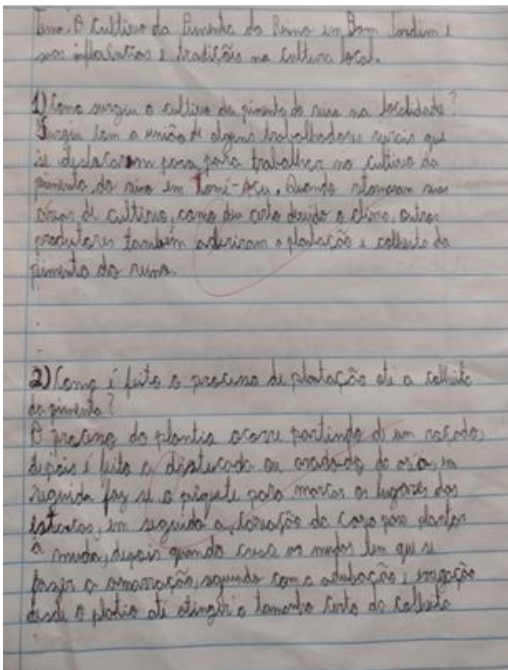 Tema: O cultivo da Pimenta do Reino em Bom Jardim e
suas influências e tradições na cultura local.
1) Como surgiu o cultivo da pimenta do reino na localidade?
Surgiu com a união de alguns trabalhadores rurais que
se deslocaram para para trabalhar no cultivo da
pimenta do reino em Tomé-Açu. Quando retornaram suas
áreas de cultivo, como deu certo devido o clima, outros
produtores também aderiram a plantação e colheita da
pimenta do reino.
2) Como é feito o processo de plantação até a colheita
da pimenta?
O processo do plantio ocorre partindo de um roçado,
depois é feita a destocada ou aradado da área, em
seguida faz se o piquete para marcar os lugares das
estacas, em seguida a do cova para plantar
a muda, depois quando cresce as mudas tem que se
fazer a amarração, seguido com a adubação e irrigação
desde o plantio até atingir o tamanho certo da colheita